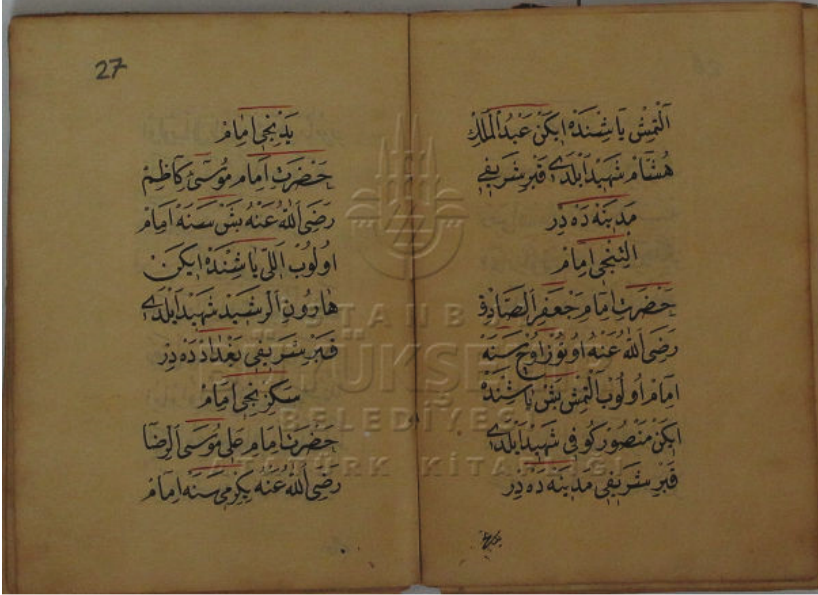 اَلْتْمِشْ يَاشِنْدَهْ اِيكَنْ عَبْدُ الْمَلِكِ
هُشَامْ شَهِيدْ اَيْلَدِى قَبْرِ شَرِيفِى
مَدِينَه دَه دِرْ
اَلْتِنْجِى اِمَامْ
حَضْرَتِ اِمَامِ جَعْفَرِ الصَّادِقْ
رَضِىَ اللّٰهُ عَنْهُ اُوتُوزْ اُوچْ سَنَه
اِمَامْ اُولُوبْ اَلْتْمِشْ بَشْ يَاشِنْدَهْ
اِيكَنْ مَنْصُورْ كُوفِى شَهِيدْ اَيْلَدِى
قَبْرِ شَرِيفِى مَدِينَه دَه دِرْ
27
يَدِنْجِى اِمَامْ
حَضْرَتِ اِمَامِ مُوسَى كَاظِمْ
رَضِىَ اللّٰهُ عَنْهُ بَشْ سَنَهْ اِمَامْ
اُولُوبْ اَللِّى يَاشِنْدَهْ اِيكَنْ
هَارُونِ الرَّشِيدْ شَهِيدْ اَيْلَدِى
قَبْرِ شَرِيفِى بَغْدَادْ دَه دِرْ
سَكِزِنْجِى اِمَامْ
حَضْرَتِ اِمَامِ عَلِى مُوسَى الرِّضَا
رَضِىَ اللّٰهُ عَنْهُ يِكِرْمِى سَنَه اِمَامْ
İSTANBUL
BÜYÜKŞEHİR
BELEDİYESİ
ATATÜRK KİTAPLIĞI